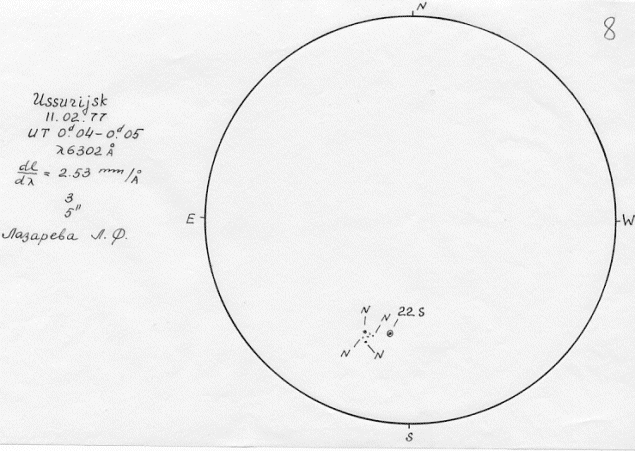 N
8
Ussurijsk
11.02.77
UT 0.ᵈ04-0.ᵈ05
λ6302 Å
dl/dλ = 2.53 mm/Å
3
5"
Лазарева Л.Ф.
E
W
N
N
22 S
N
N
S